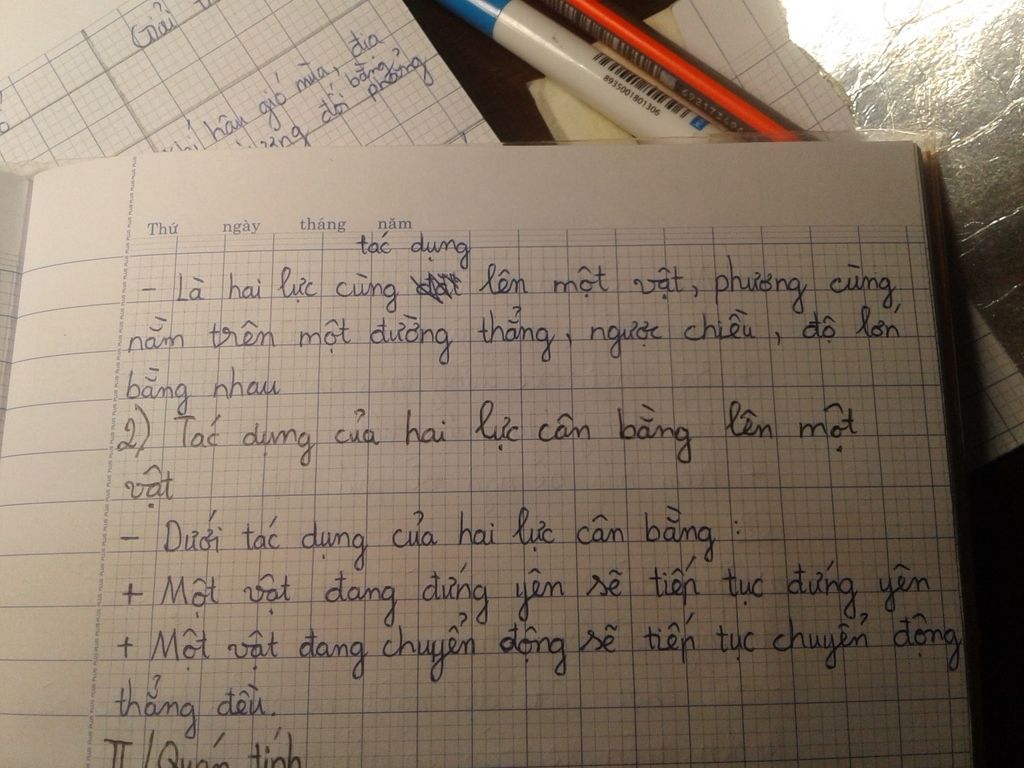 Giải
hậu gió mùa, địa
đồi bằng
phẳng
8935001801306
Thứ ngày tháng năm
tác dụng
- Là hai lực cùng lên một vật, phương cùng
nằm trên một đường thẳng, ngược chiều, độ lớn
bằng nhau
2) Tác dụng của hai lực cân bằng lên một
vật
- Dưới tác dụng của hai lực cân bằng :
+ Một vật đang đứng yên sẽ tiếp tục đứng yên
+ Một vật đang chuyển động sẽ tiếp tục chuyển động
thẳng đều.
II / Quán tính